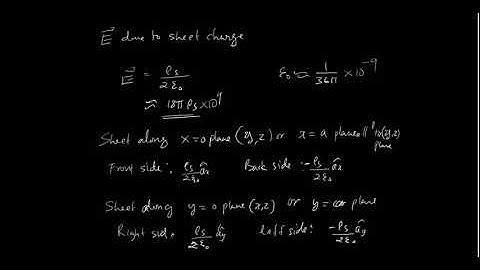 E⃗ due to sheet charge
E⃗ = ρs / 2ε₀ ε₀ ≈ 1/36π × 10⁻⁹
≈ 18π ρs × 10⁹
Sheet along x=0 plane (y,z) or x = a plane // to (y,z) plane
Front side: ρs/2ε₀ âx Back side: -ρs/2ε₀ âx
Sheet along y = 0 plane (x,z) or y = plane
Right side = ρs/2ε₀ ây left side: -ρs/2ε₀ ây